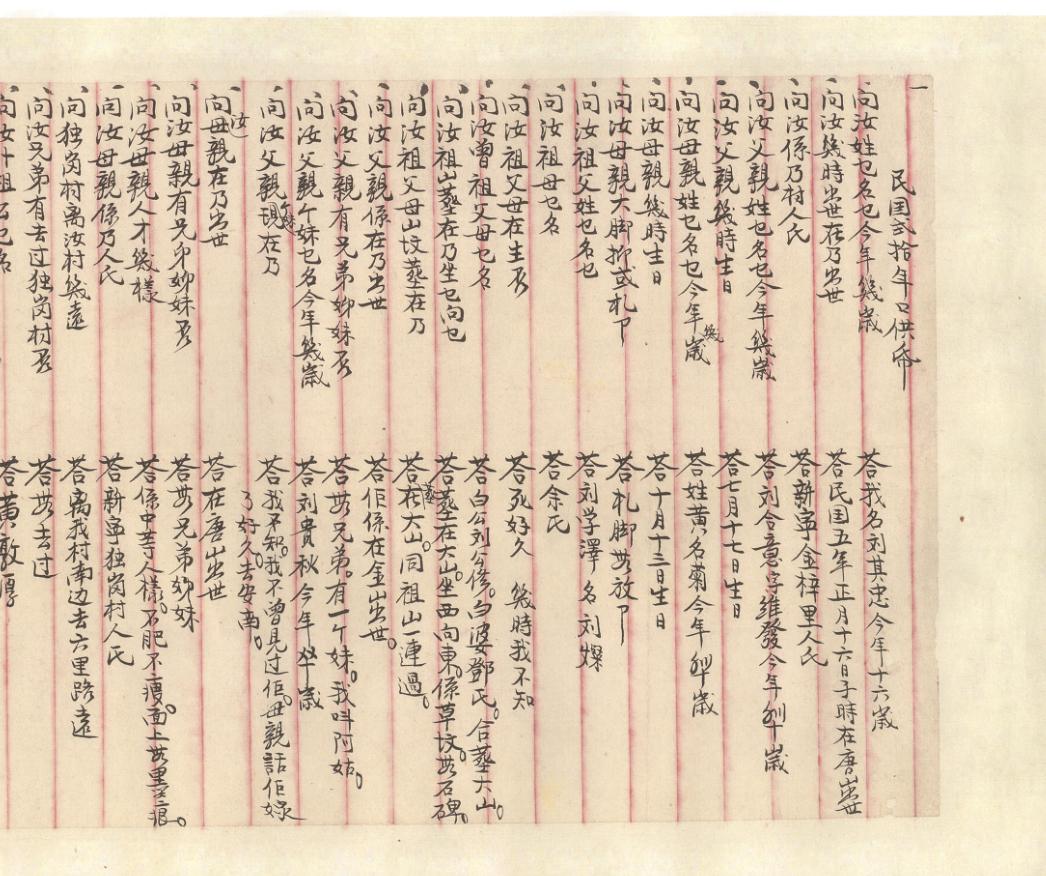 一
民国式拾年口供帋
问汝姓乜名乜今年幾歲 答我名刘其忠今年十六歲
问汝幾時出世在乃出世 答民国五年正月十六日子時在唐出世
问汝係乃村人氏 答新寧金梓里人氏
问汝父親姓乜名乜今年幾歲 答刘合意字維發今年卌歲
问汝父親幾時生日 答七月十七日生日
问汝母親姓乜名乜今年幾歲 答姓黄名菊今年卌歲
问母親幾時生日 答十月十三日生日
问汝母親大脚抑或札卩 答札脚毋放卩
问汝祖父姓乜名乜 答刘学澤名刘燦
问汝祖母乜名 答余氏
问汝祖父母在生否 答死好久 幾時我不知
问汝曾祖父母乜名 答白公刘公俻。白婆鄧氏。合塟大山。
问汝祖山塟在乃坐乜向乜 答塟在大山。坐西向東。係草坟。毋石碑。
问汝祖父母山坟塟在乃 答塟在大山。同祖山一連過。
问汝父親係在乃出世 答佢係在金山出世。
问汝父親有兄弟姊妹否 答毋兄弟。有一个妹。我呌阿姑。
问汝父親个妹乜名今年幾歲 答刘貴秋今年卅歲
问汝父親个妹現在乃 答我不知。我不曾見过佢。母親話佢嫁了好久。去安南。
问汝母親在乃出世 答在唐山出世
问汝母親有兄弟姊妹否 答毋兄弟姊妹
问汝母親人才幾樣 答係中等人樣。不肥不瘦。面上毋黑痕。
问汝母親係乃人氏 答新寧独岗村人氏
问独岗村离汝村幾遠 答离我村南边去六里路遠
问汝兄弟有去过独岗村否 答毋去过
问汝外祖公乜名 答黄敦厚